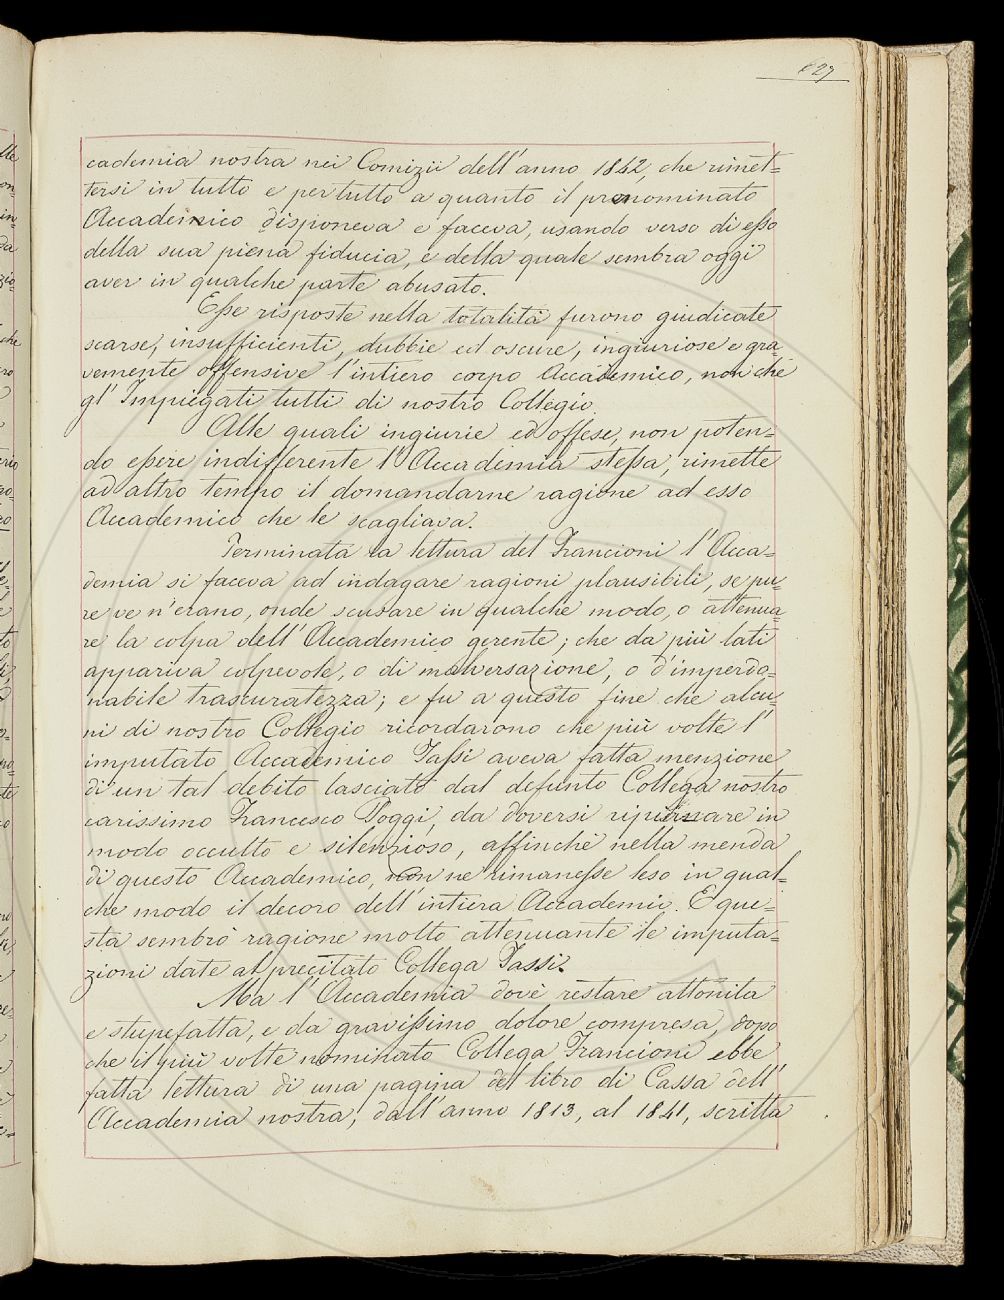 827
cademia nostra nei Comizii dell'anno 1842, che rimet=
tersi in tutto e per tutto a quanto il prenominato
Accademico disponeva e faceva, usando verso di esso
della sua piena fiducia, e della quale sembra oggi
aver in qualche parte abusato.
Esse risposte nella totalità furono giudicate
scarse, insufficienti, dubbie ed oscure, ingiuriose e gra=
vemente offensive l'intiero corpo Accademico, non chè
gl'Impiegati tutti di nostro Collegio.
Alle quali ingiurie ed offese, non poten=
do essere indifferente l'Accademia stessa, rimette
ad altro tempo il domandarne ragione ad esso
Accademico che le scagliava.
Terminata la lettura del Francioni l'Acca=
demia si faceva ad indagare ragioni plausibili, se pu=
re ve n'erano, onde scusare in qualche modo, o attenua=
re la colpa dell'Accademico gerente; che da più lati
appariva colpevole, o di malversazione, o d'imperdo=
nabile trascuratezza; e fu a questo fine che alcu=
ni di nostro Collegio ricordarono che più volte l'
imputato Accademico Tassi aveva fatta menzione
di un tal debito lasciato dal defunto Collega nostro
carissimo Francesco Poggi, da doversi ripianare in
modo occulto e silenzioso, affinchè nella menda
di questo Accademico, non ne rimanesse leso in qual=
che modo il decoro dell'intiera Accademia. E que=
sta sembrò ragione molto attenuante le imputa=
zioni date al precitato Collega Tassi.
Ma l'Accademia dovè restare attonita
e stupefatta, e da gravissimo dolore compresa, dopo
che il più volte nominato Collega Francioni ebbe
fatta lettura di una pagina del libro di Cassa dell'
Accademia nostra, dall'anno 1813, al 1841, scritta